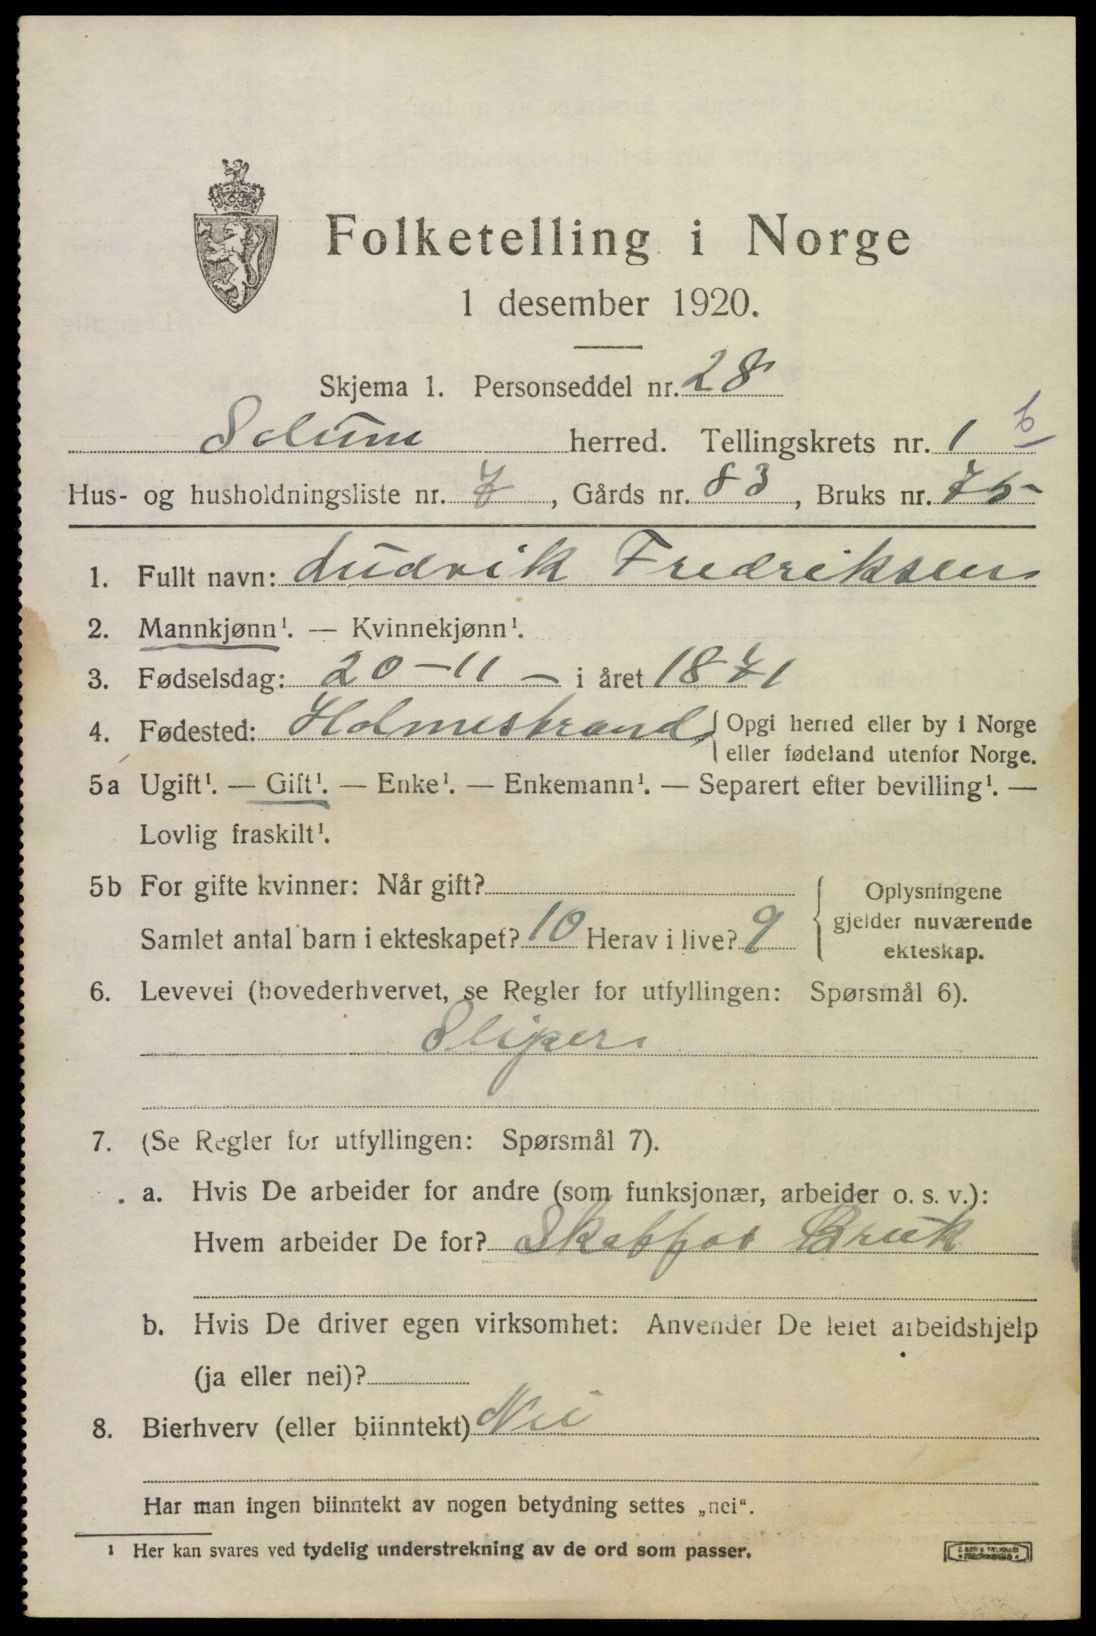 Folketelling i Norge
1 desember 1920.
Skjema 1. Personseddel nr. 28
Solum herred. Tellingskrets nr. 1 b
Hus- og husholdningsliste nr. 7, Gårds nr. 83, Bruks nr. 75
1. Fullt navn: Ludvik Fredriksen
2. Mannkjønn¹. — Kvinnekjønn¹.
3. Fødselsdag: 20-11- i året 1871
4. Fødested: Holmestrand { Opgi herred eller by i Norge
eller fødeland utenfor Norge.
5a Ugift¹. — Gift¹. — Enke¹. — Enkemann¹. — Separert efter bevilling¹. —
Lovlig fraskilt¹.
5b For gifte kvinner: Når gift?
Samlet antal barn i ekteskapet? 10 Herav i live? 9
{ Oplysningene
gjelder nuværende
ekteskap.
6. Levevei (hovederhvervet, se Regler for utfyllingen: Spørsmål 6).
Sliper
7. (Se Regler for utfyllingen: Spørsmål 7).
a. Hvis De arbeider for andre (som funksjonær, arbeider o. s. v.):
Hvem arbeider De for? Skotfos Bruk
b. Hvis De driver egen virksomhet: Anvender De leiet arbeidshjelp
(ja eller nei)?
8. Bierhverv (eller biinntekt) Nei
Har man ingen biinntekt av nogen betydning settes „nei“.
¹ Her kan svares ved tydelig understrekning av de ord som passer.